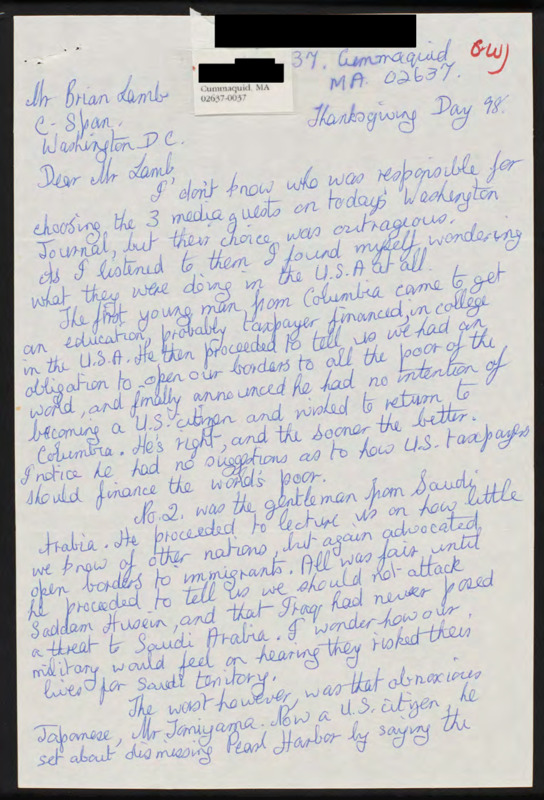 37, Cummaquid
MA. 02637.
Cummaquid, MA
02637-0037
Thanksgiving Day 98.
Mr Brian Lamb
C-Span.
Washington D C.
Dear Mr Lamb,
I don't know who was responsible for
choosing the 3 media guests on today's Washington
Journal, but their choice was outrageous.
As I listened to them I found myself wondering
what they were doing in the U.S.A at all.
The first young man from Columbia came to get
an education, probably taxpayer financed, in college
in the U.S.A. He then proceeded to tell us we had an
obligation to open our borders to all the poor of the
world, and finally announced he had no intention of
becoming a U.S. citizen and wished to return to
Columbia. He's right, and the sooner the better.
I notice he had no suggestions as to how U.S. taxpayers
should finance the world's poor.
No. 2. was the gentleman from Saudi
Arabia. He proceeded to lecture us on how little
we know of other nations, but again advocated
open borders to immigrants. All was fair until
he proceeded to tell us we should not attack
Saddam Husein, and that Iraq had never posed
a threat to Saudi Arabia. I wonder how our
military would feel on hearing they risked their
lives for Saudi territory.
The worst however, was that obnoxious
Japanese, Mr Tomiyama. Now a U.S. citizen, he
set about dismissing Pearl Harbor by saying the